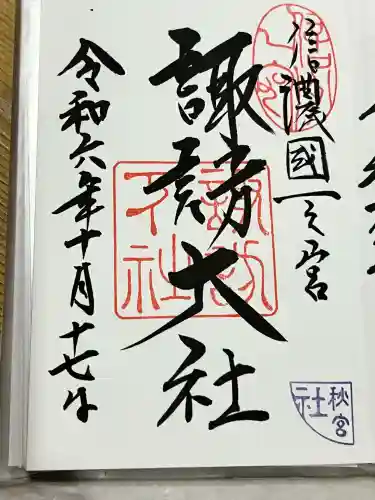 信濃國一之宮
諏訪大社
令和六年十月十七日
諏訪
下社
秋宮
社